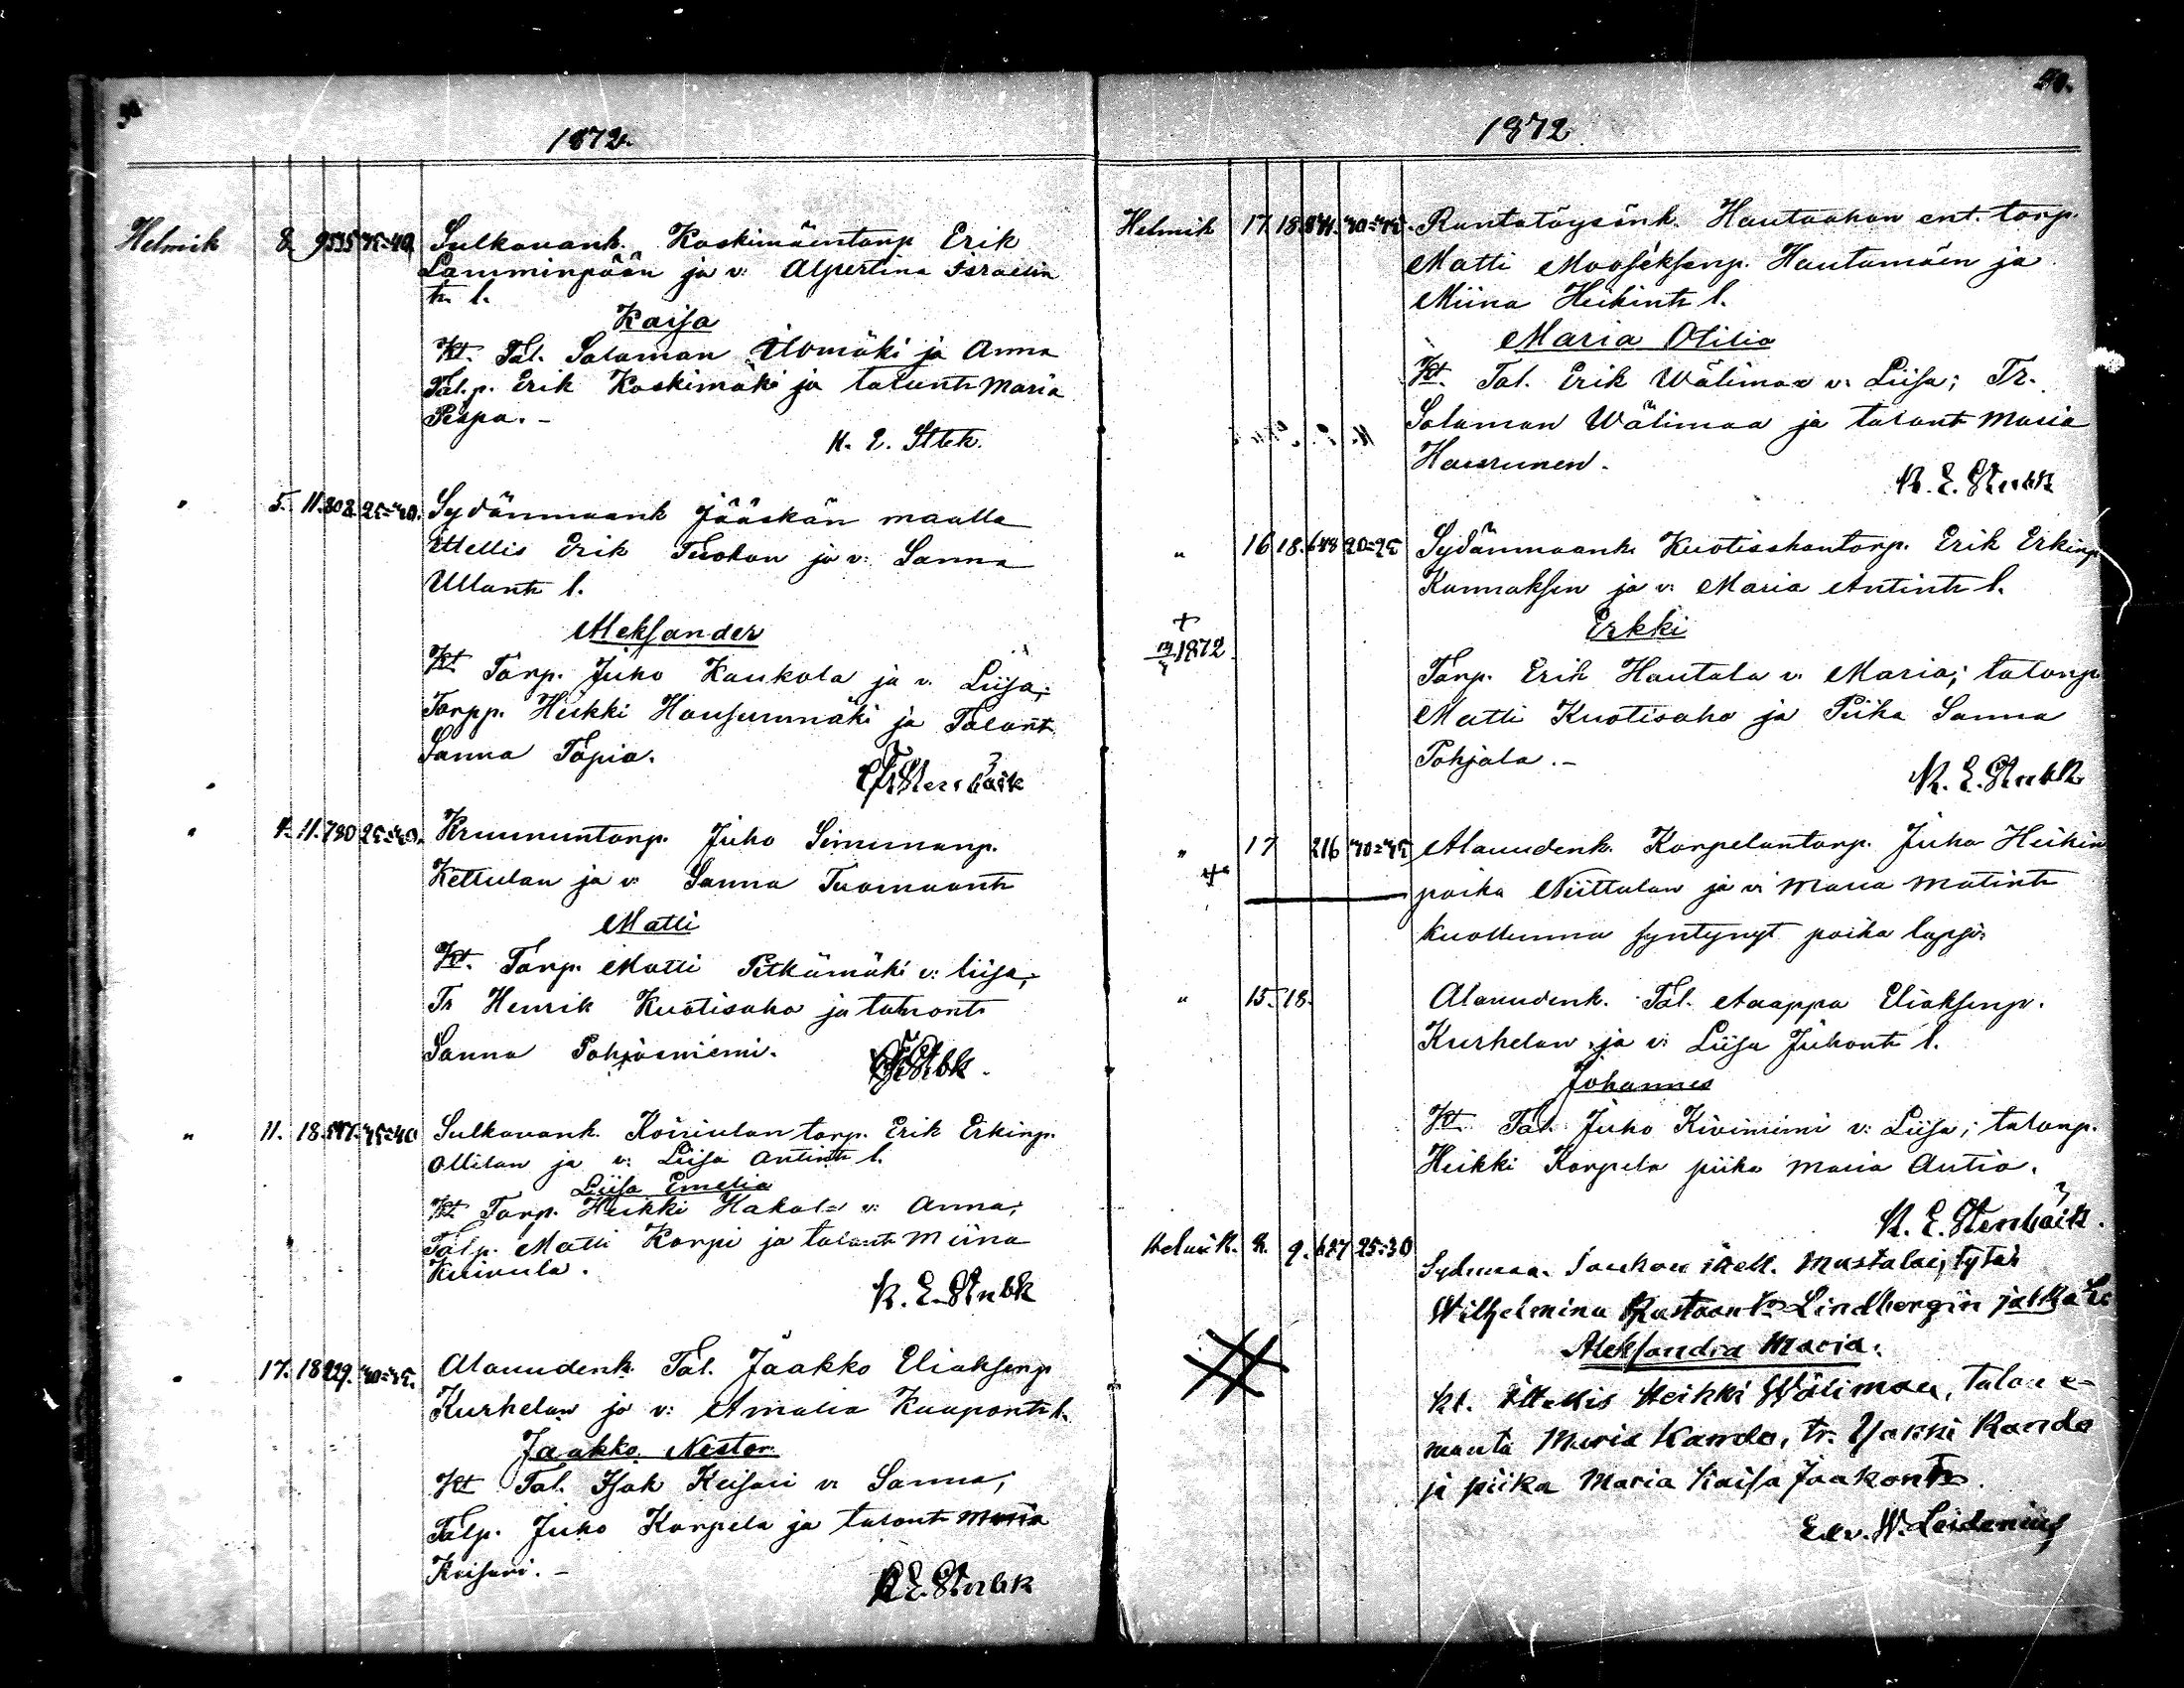 1872.
Helmik 8. 9 535 35=40. Sulkavank. Koskimäentorp Erik
Lamminpään ja v: Alpertina Israelin
tr. l.
Kaisa
Kt. Tal. Salaman Ilomäki ja Anna
Tal.p. Erik Koskimäki ja talontr Maria
Pespa. -
K. E. Stbk.
" 5. 11. 802. 25=40. Sydänmaank Jääskän maalla
ittellis Erik Tuohon ja v: Sanna
Ullantr l.
Aleksander
Kt Torp. Juho Kaukola ja v. Liisa;
Torpp. Heikki Hansunmäki ja Talontr
Sanna Tapia.
" 4. 11. 780 25=40. Kruununtorp. Juho Simunanp.
Kettulan ja v: Sanna Tuomaantr
Matti
Kt. Torp. Matti Pitkämäki v: liisa;
Tr Henrik Kuotisaho ja talontr
Sanna Pohjasniemi.
" 11. 18. 35=40 Sulkavank. Koiriulan torp. Erik Erkinp.
Ollilan ja v: Liisa Antintr l.
Liisa Emelia
Kt Torp. Heikki Hakola v: Anna;
Talp. Matti Korpi ja talontr Miina
Kuivula.
K. E. Stnbk
" 17. 18 229. 40=45. Alauudenk. Tal. Jaakko Eliaksenp
Kurhelan ja v: Amalia Kaapontr l.
Jaakko Nestor
Kt Tal. Isak Keisari v: Sanna;
Talp. Juho Korpela ja talontr Maria
Keisari. -
K E. Stnbk
1872
Helmik 17. 18. 40=45. Rantatöysänk. Hautaahon ent. torp.
Matti Mooseksenp. Hautamäen ja
Miina Heikintr l.
Maria Otilia
Kt. Tal. Erik Wälimaa v: Liisa; Tr.
Salaman Wälimaa ja talontr Maria
K. E. Stnbk
" 16 18. 648 20=25 Sydänmaank. Kuotisahontorp. Erik Erkinp
Kannaksen ja v: Maria Antintr l.
+
1872
Erkki
Torp. Erik Hautala v. Maria; talonp
Matti Kuotisaho ja Piika Sanna
Pohjola. -
K. E. Stnbk
" 17 216 40=45 Alauudenk. Korpelantorp. Juho Heikin
poika Niittulan ja v: Maria Matintr
kuolluna syntynyt poika lapsi.
" 15. 18. Alauudenk. Tal. Aappa Eliaksenp.
Kurhelan ja v: Liisa Juhontr l.
Johannes
Kt Tal. Juho Kiviniemi v: Liisa; talonp.
Heikki Korpela piika Maria Autio.
K. E. Stenbäck.
Helmik. 2. 9. 627 25=30 Sydmaa. Jauhon itell. Mustalaisj tytär
Wilhelmina Kustaantr Lindbergin
Aleksandra Maria.
kt. ittellis Heikki Wälimaa, talon e-
mäntä Maria Kando, tr. Yrkki Kando
ja piika Maria Kaisa Jaakontr.
Edv. W. Leidenius